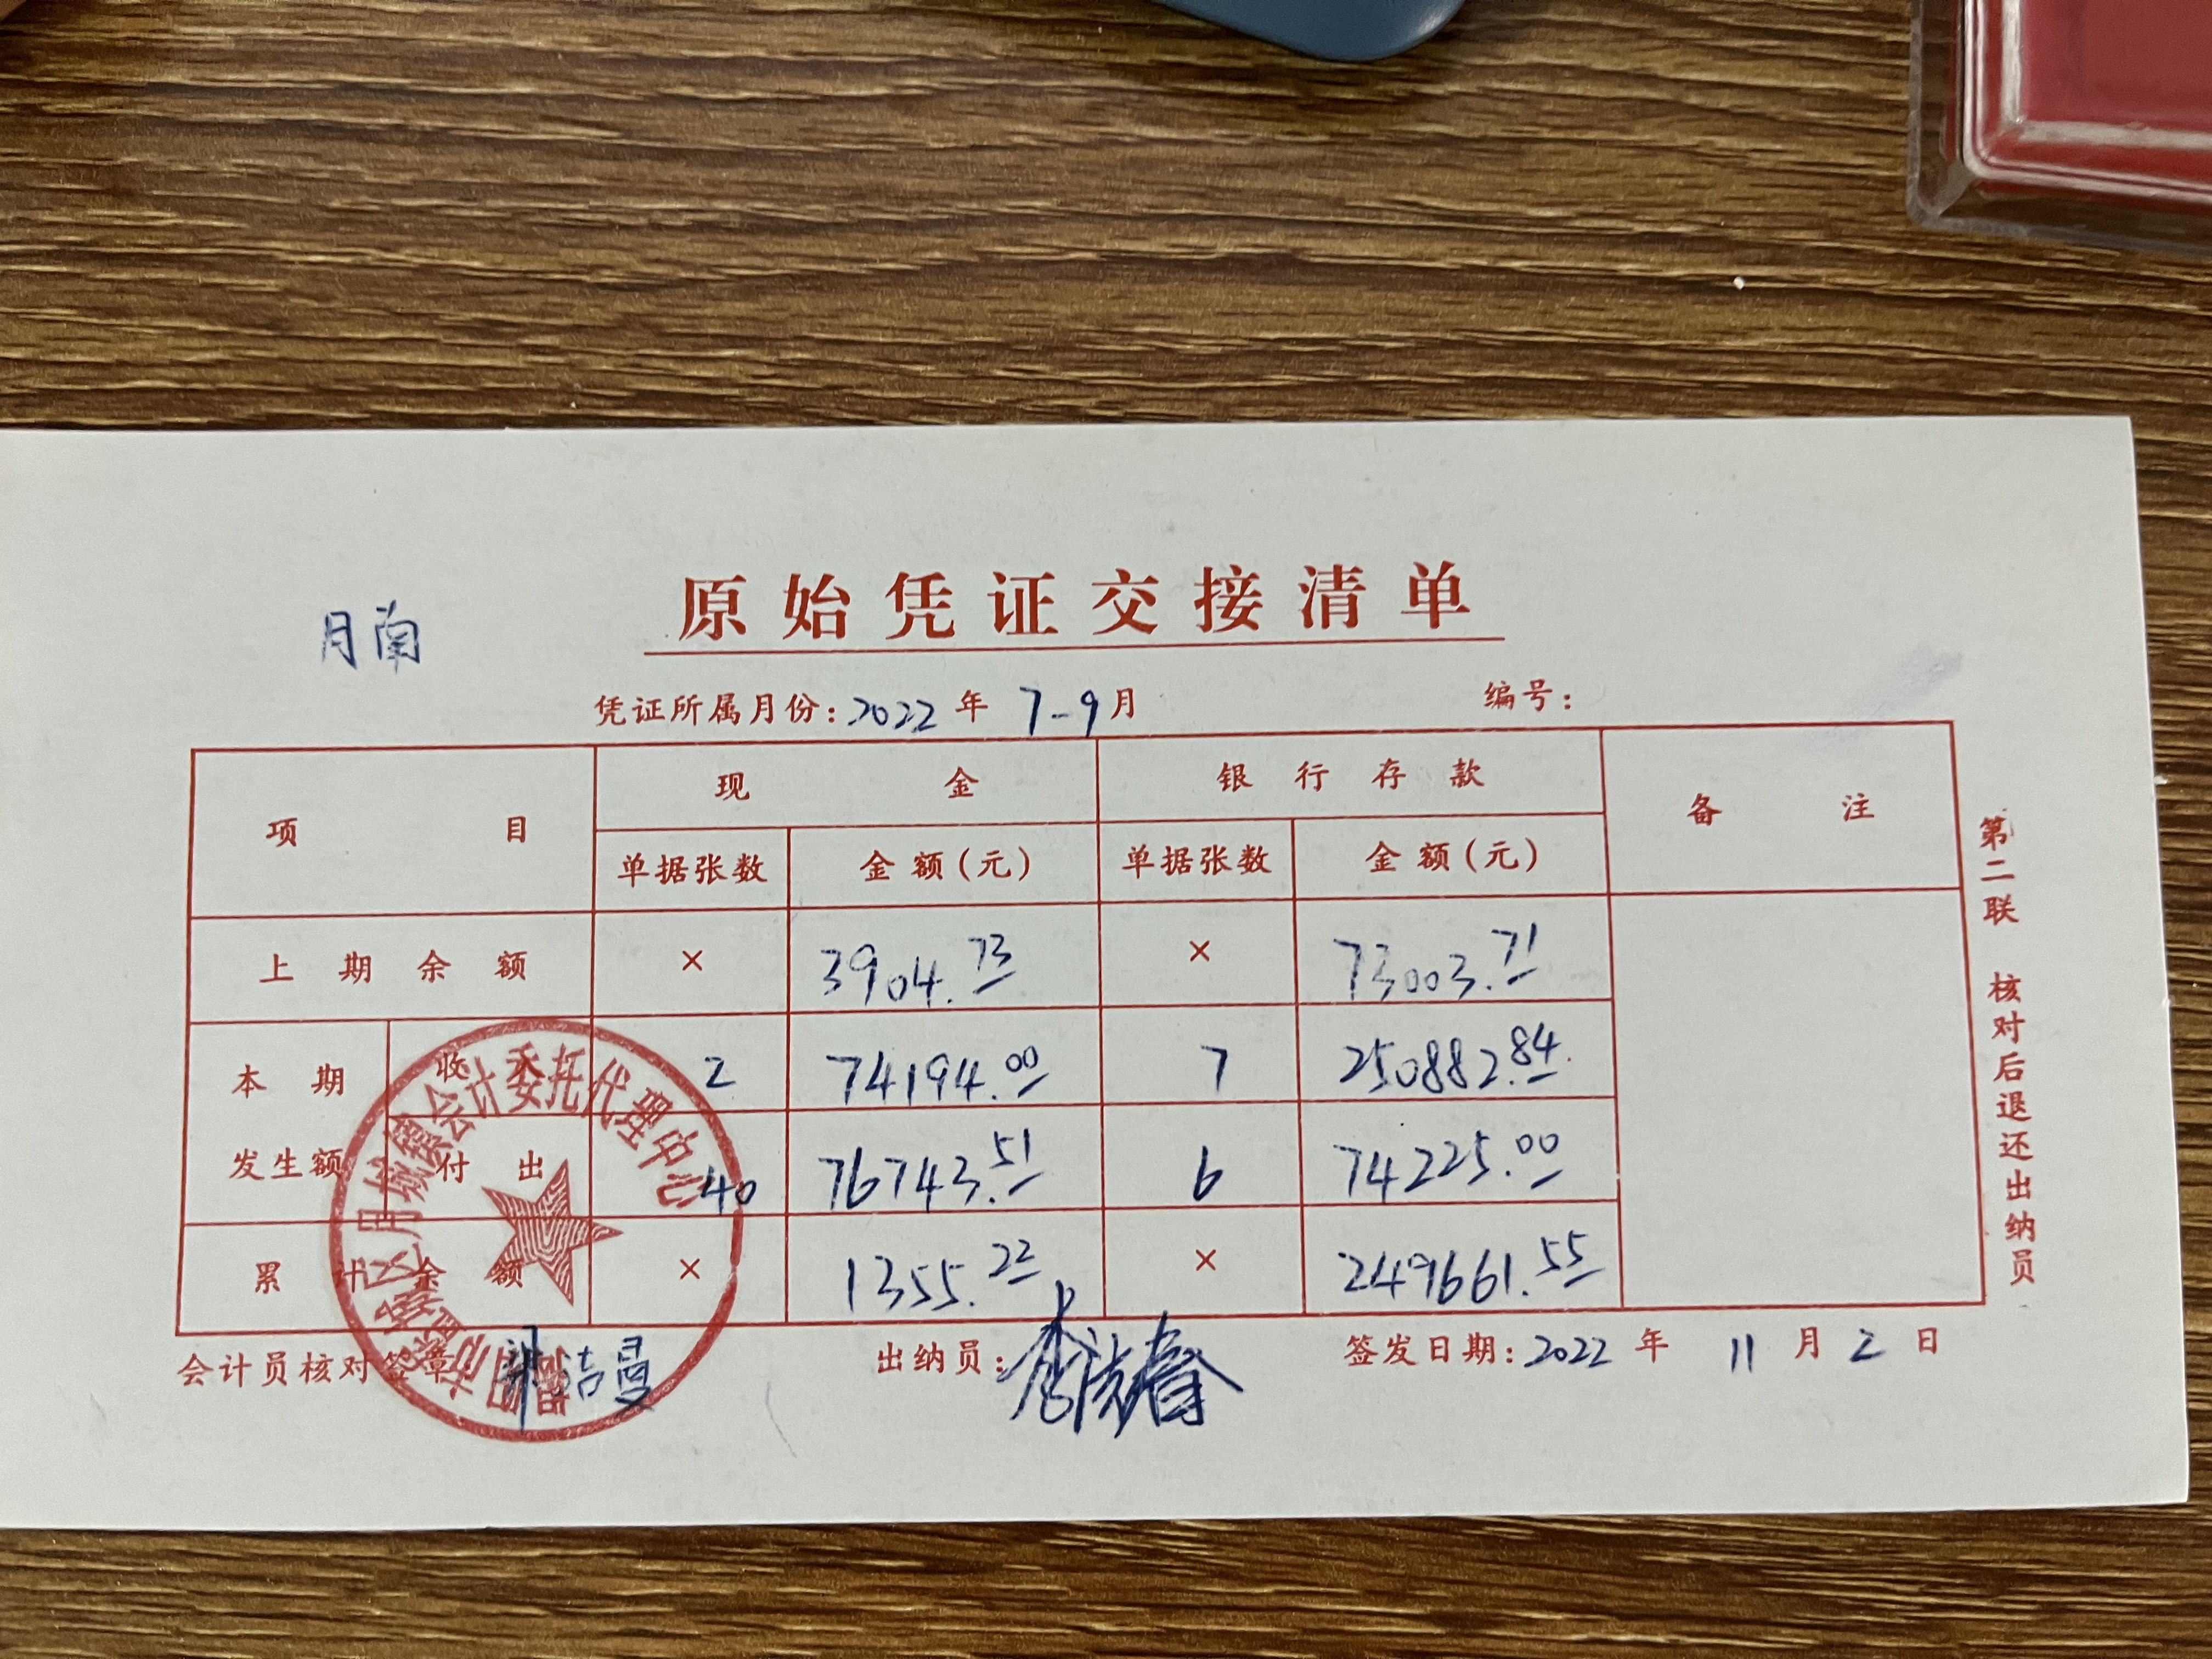 原始凭证交接清单
月南
凭证所属月份：2022 年 7-9 月 编号：
项目 现金 银行存款 备注
单据张数 金额(元) 单据张数 金额(元)
上期余额 × 3904.73 × 73003.71
本期发生额 收入 2 74194.00 7 250882.84
付出 40 76743.51 6 74225.00
累计余额 × 1355.22 × 249661.55
会计员核对签章： 洁曼 出纳员： 签发日期：2022 年 11 月 2 日
第二联 核对后退还出纳员
区月城镇会计委托代理中心